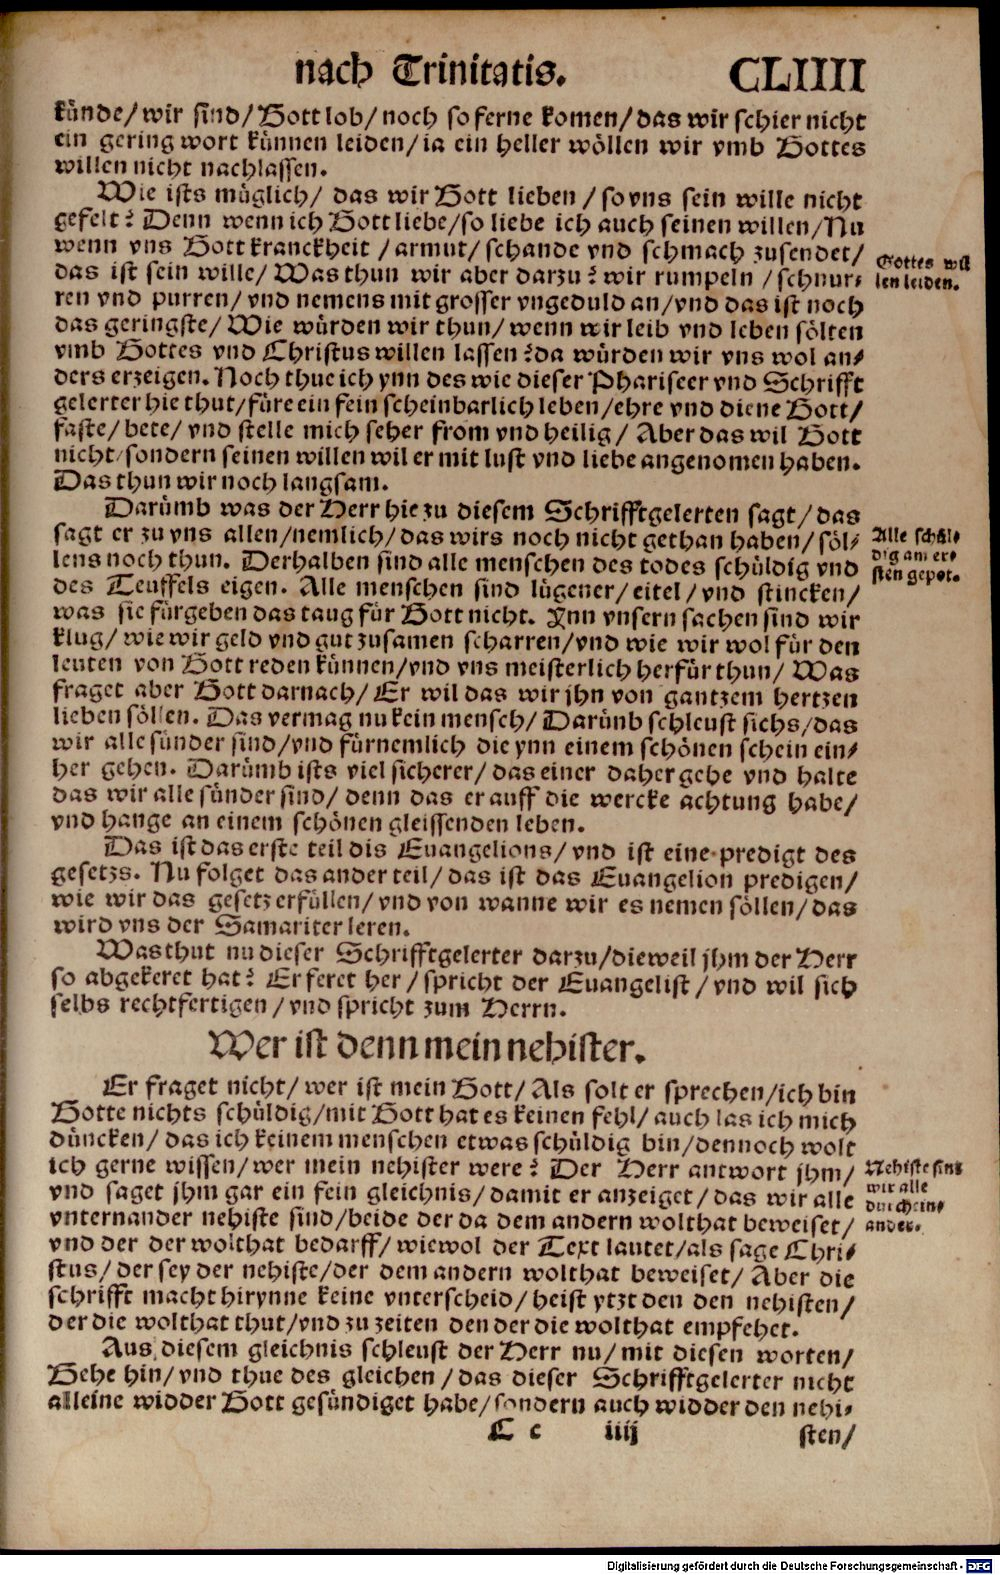 nach Trinitatis. CLIIII
künde/wir sind/Gott lob/noch so ferne komen/das wir schier nicht
ein gering wort künnen leiden/ia ein heller wöllen wir vmb Gottes
willen nicht nachlassen.
Wie ists müglich/ das wir Gott lieben /so vns sein wille nicht
gefelt? Denn wenn ich Gott liebe/so liebe ich auch seinen willen/Nu
wenn vns Gott kranckheit /armut/schande vnd schmach zusendet/
das ist sein wille/Was thun wir aber darzu? wir rumpeln /schnur-
ren vnd purren/vnd nemens mit grosser vngeduld an/vnd das ist noch
das geringste/Wie würden wir thun/wenn wir leib vnd leben sölten
vmb Gottes vnd Christus willen lassen?da würden wir vns wol an-
ders erzeigen. Noch thue ich ynn des wie dieser Phariseer vnd Schrifft
gelerter hie thut/füre ein fein scheinbarlich leben/ehre vnd diene Gott/
faste/bete/vnd stelle mich seher from vnd heilig/ Aber das wil Gott
nicht/sondern seinen willen wil er mit lust vnd liebe angenomen haben.
Das thun wir noch langsam.
Gottes wil
len leiden.
Darümb was der Herr hie zu diesem Schrifftgelerten sagt/das
sagt er zu vns allen/nemlich/das wirs noch nicht gethan haben/söl-
lens noch thun. Derhalben sind alle menschen des todes schüldig vnd
des Teuffels eigen. Alle menschen sind lügener/eitel/vnd stincken/
was sie fürgeben das taug für Gott nicht. Ynn vnsern sachen sind wir
klug/wie wir geld vnd gut zusamen scharren/vnd wie wir wol für den
leuten von Gott reden künnen/vnd vns meisterlich herfür thun/Was
fraget aber Gott darnach/Er wil das wir jhn von gantzem hertzen
lieben söllen. Das vermag nu kein mensch/Darümb schleust sichs/das
wir alle sünder sind/vnd fürnemlich die ynn einem schönen schein ein-
her gehen. Darümb ists viel sicherer/das einer daher gehe vnd halte
das wir alle sünder sind/denn das er auff die wercke achtung habe/
vnd hange an einem schönen gleissenden leben.
Alle schül-
dig am er-
sten gepot.
Das ist das erste teil dis Euangelions/vnd ist eine predigt des
gesetzs. Nu folget das ander teil/das ist das Euangelion predigen/
wie wir das gesetz erfüllen/vnd von wanne wir es nemen söllen/das
wird vns der Samariter leren.
Was thut nu dieser Schrifftgelerter darzu/dieweil jhm der Herr
so abgekeret hat? Er feret her/spricht der Euangelist/vnd wil sich
selbs rechtfertigen/vnd spricht zum Herrn.
Wer ist denn mein nehister.
Er fraget nicht/wer ist mein Gott/Als solt er sprechen/ich bin
Gotte nichts schüldig/mit Gott hat es keinen fehl/auch las ich mich
düncken/das ich keinem menschen etwas schüldig bin/dennoch wolt
ich gerne wissen/wer mein nehister were? Der Herr antwort jhm/
vnd saget jhm gar ein fein gleichnis/damit er anzeiget/das wir alle
vnternander nehiste sind/beide der da dem andern wolthat beweiset/
vnd der der wolthat bedarff/wiewol der Text lautet/als sage Chri-
stus/der sey der nehiste/der dem andern wolthat beweiset/Aber die
schrifft macht hirynne keine vnterscheid/heist ytzt den den nehisten/
der die wolthat thut/vnd zu zeiten den der die wolthat empfehet.
Nehiste sind
wir alle
durchein-
ander.
Aus diesem gleichnis schleust der Herr nu/mit diesen worten/
Gehe hin/vnd thue des gleichen/das dieser Schrifftgelerter nicht
alleine widder Gott gesündiget habe/sondern auch widder den nehi-
C c iiij sten/
Digitalisierung gefördert durch die Deutsche Forschungsgemeinschaft - DFG